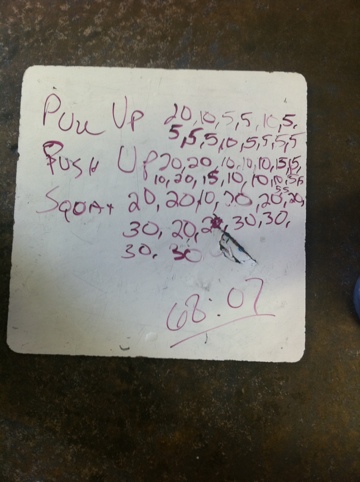 Pull Up 20,10,5,5,10,5,
5,5,5,10,5,5,5,5
Push Up 20,20,10,10,10,15,15,
10,20,15,10,10,10,5,5
55
Squat 20,20,10,20,20,20,
30,20, 30,30,
30, 30
68:07